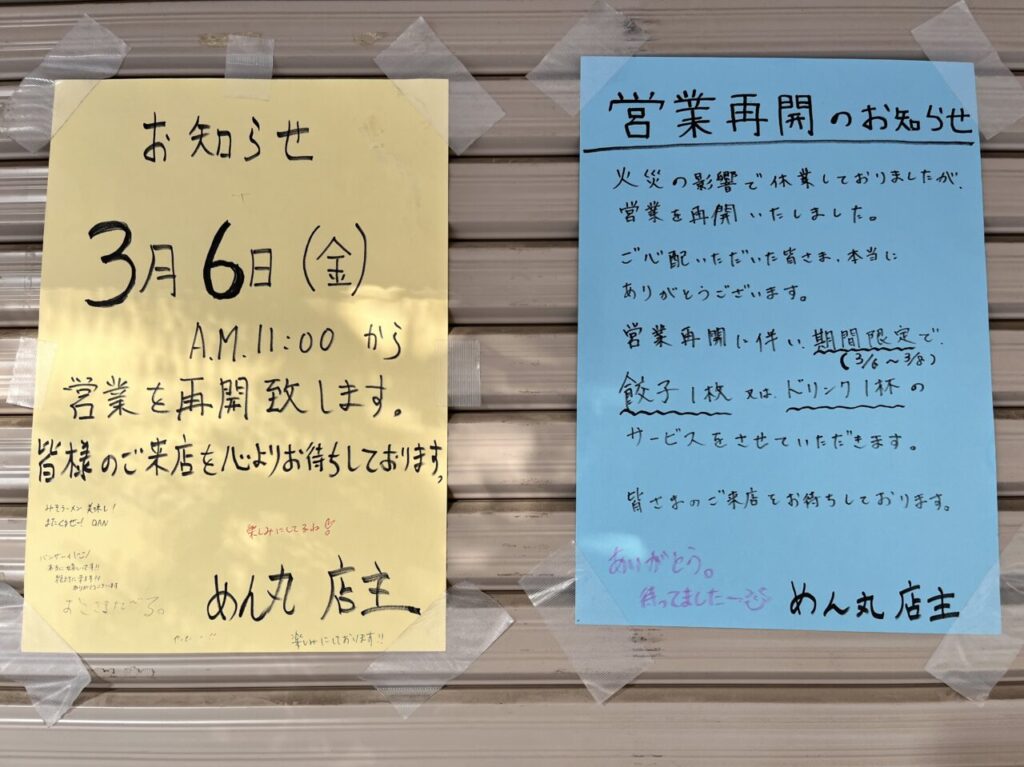 お知らせ
3月6日(金)
A.M.11:00 から
営業を再開致します。
皆様のご来店を心よりお待ちしております。
みそラーメン美味し!
またくるぜー! DAN
楽しみにしてるね
バンザーイ!
めん丸 店主
楽しみにしております!!
営業再開のお知らせ
火災の影響で休業しておりましたが、
営業を再開いたしました。
ご心配いただいた皆さま、本当に
ありがとうございます。
営業再開に伴い、期間限定で、
(3/6～3/8)
餃子1枚 又は、ドリンク1杯の
サービスをさせていただきます。
皆さまのご来店をお待ちしております。
ありがとう。
待ってました〜
めん丸 店主